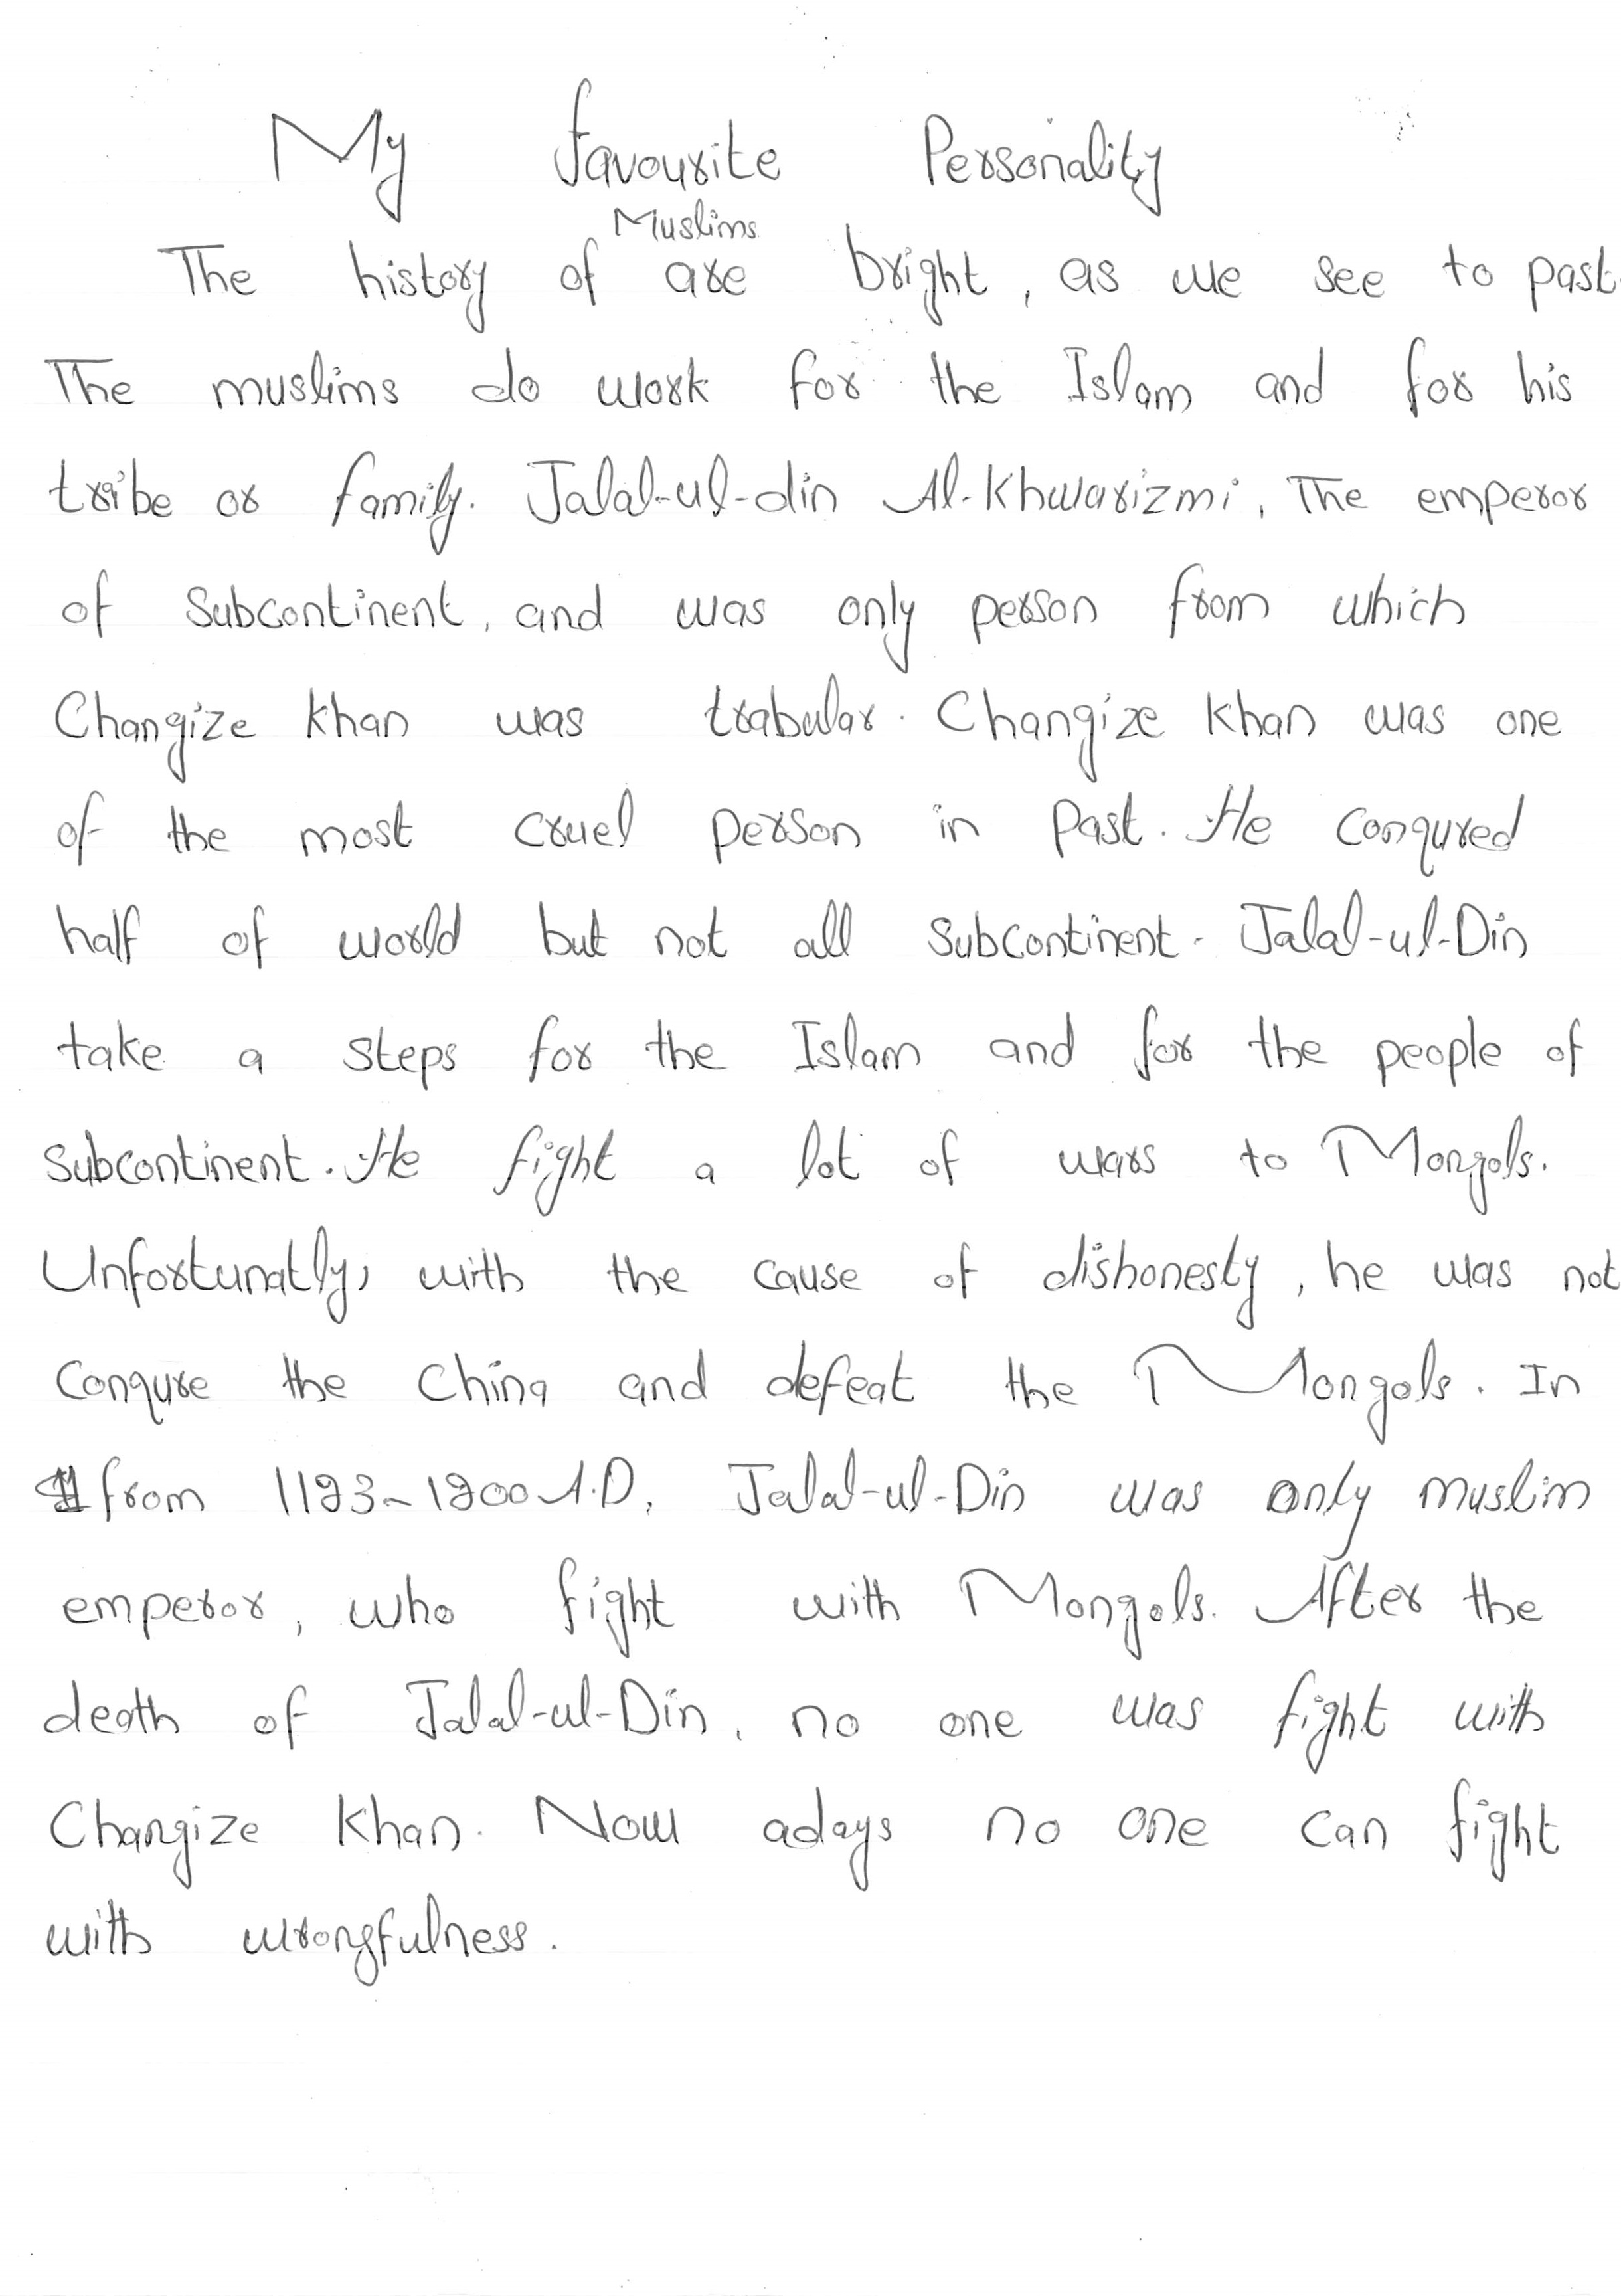 My favourite Personality
Muslims
The history of are bright, as we see to past.
The muslims do work for the Islam and for his
tribe or family. Jalal-ul-din Al-Khwarizmi, The emperor
of Subcontinent, and was only person from which
Changize khan was trabular. Changize Khan was one
of the most cruel person in Past. He conqured
half of world but not all subcontinent. Jalal-ul-Din
take a steps for the Islam and for the people of
subcontinent. He fight a lot of wars to Mongols.
Unfortunatly, with the cause of dishonesty, he was not
Conqure the China and defeat the Mongols. In
from 1193-1200 A.D, Jalal-ul-Din was only muslim
emperor, who fight with Mongols. After the
death of Jalal-ul-Din, no one was fight with
Changize Khan. Now adays no one can fight
with wrongfulness.